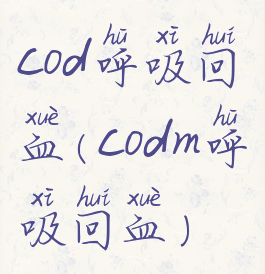 hū xī huí
cod呼吸回
xuè hū
血(codm呼
xī huí xuè
吸回血)